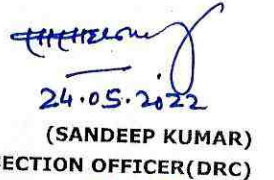 24.05.2022
(SANDEEP KUMAR)
SECTION OFFICER(DRC)